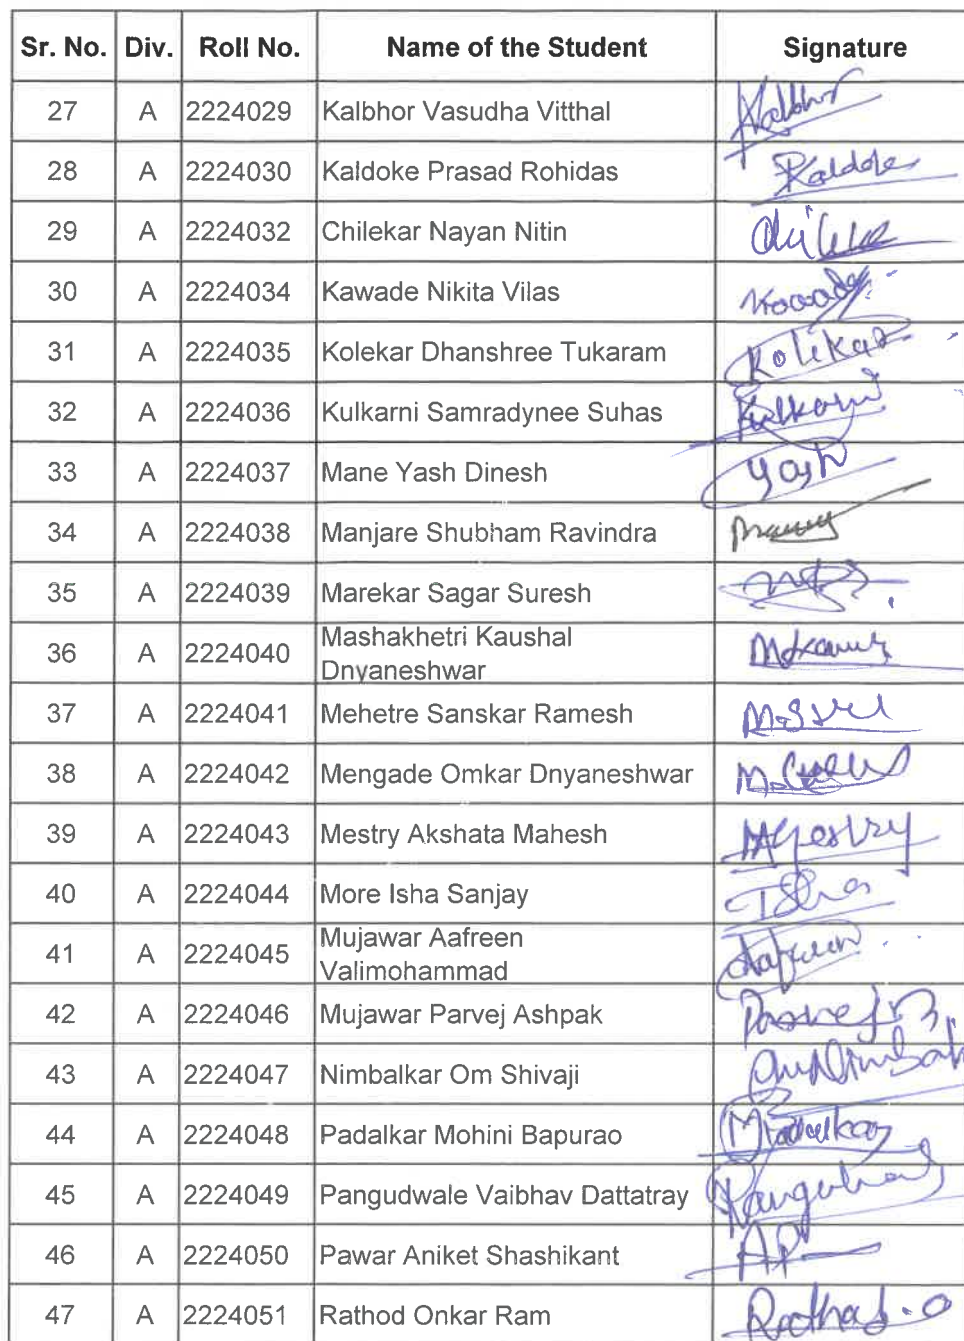 Sr. No. Div. Roll No. Name of the Student Signature
27 A 2224029 Kalbhor Vasudha Vitthal Kalbhor
28 A 2224030 Kaldoke Prasad Rohidas Kaldoke
29 A 2224032 Chilekar Nayan Nitin
30 A 2224034 Kawade Nikita Vilas
31 A 2224035 Kolekar Dhanshree Tukaram Kolekar
32 A 2224036 Kulkarni Samradynee Suhas Kulkarni
33 A 2224037 Mane Yash Dinesh Yash
34 A 2224038 Manjare Shubham Ravindra
35 A 2224039 Marekar Sagar Suresh
36 A 2224040 Mashakhetri Kaushal
Dnyaneshwar
37 A 2224041 Mehetre Sanskar Ramesh
38 A 2224042 Mengade Omkar Dnyaneshwar
39 A 2224043 Mestry Akshata Mahesh
40 A 2224044 More Isha Sanjay Isha
41 A 2224045 Mujawar Aafreen
Valimohammad Aafreen
42 A 2224046 Mujawar Parvej Ashpak
43 A 2224047 Nimbalkar Om Shivaji
44 A 2224048 Padalkar Mohini Bapurao
45 A 2224049 Pangudwale Vaibhav Dattatray
46 A 2224050 Pawar Aniket Shashikant AP
47 A 2224051 Rathod Onkar Ram Rathod.O